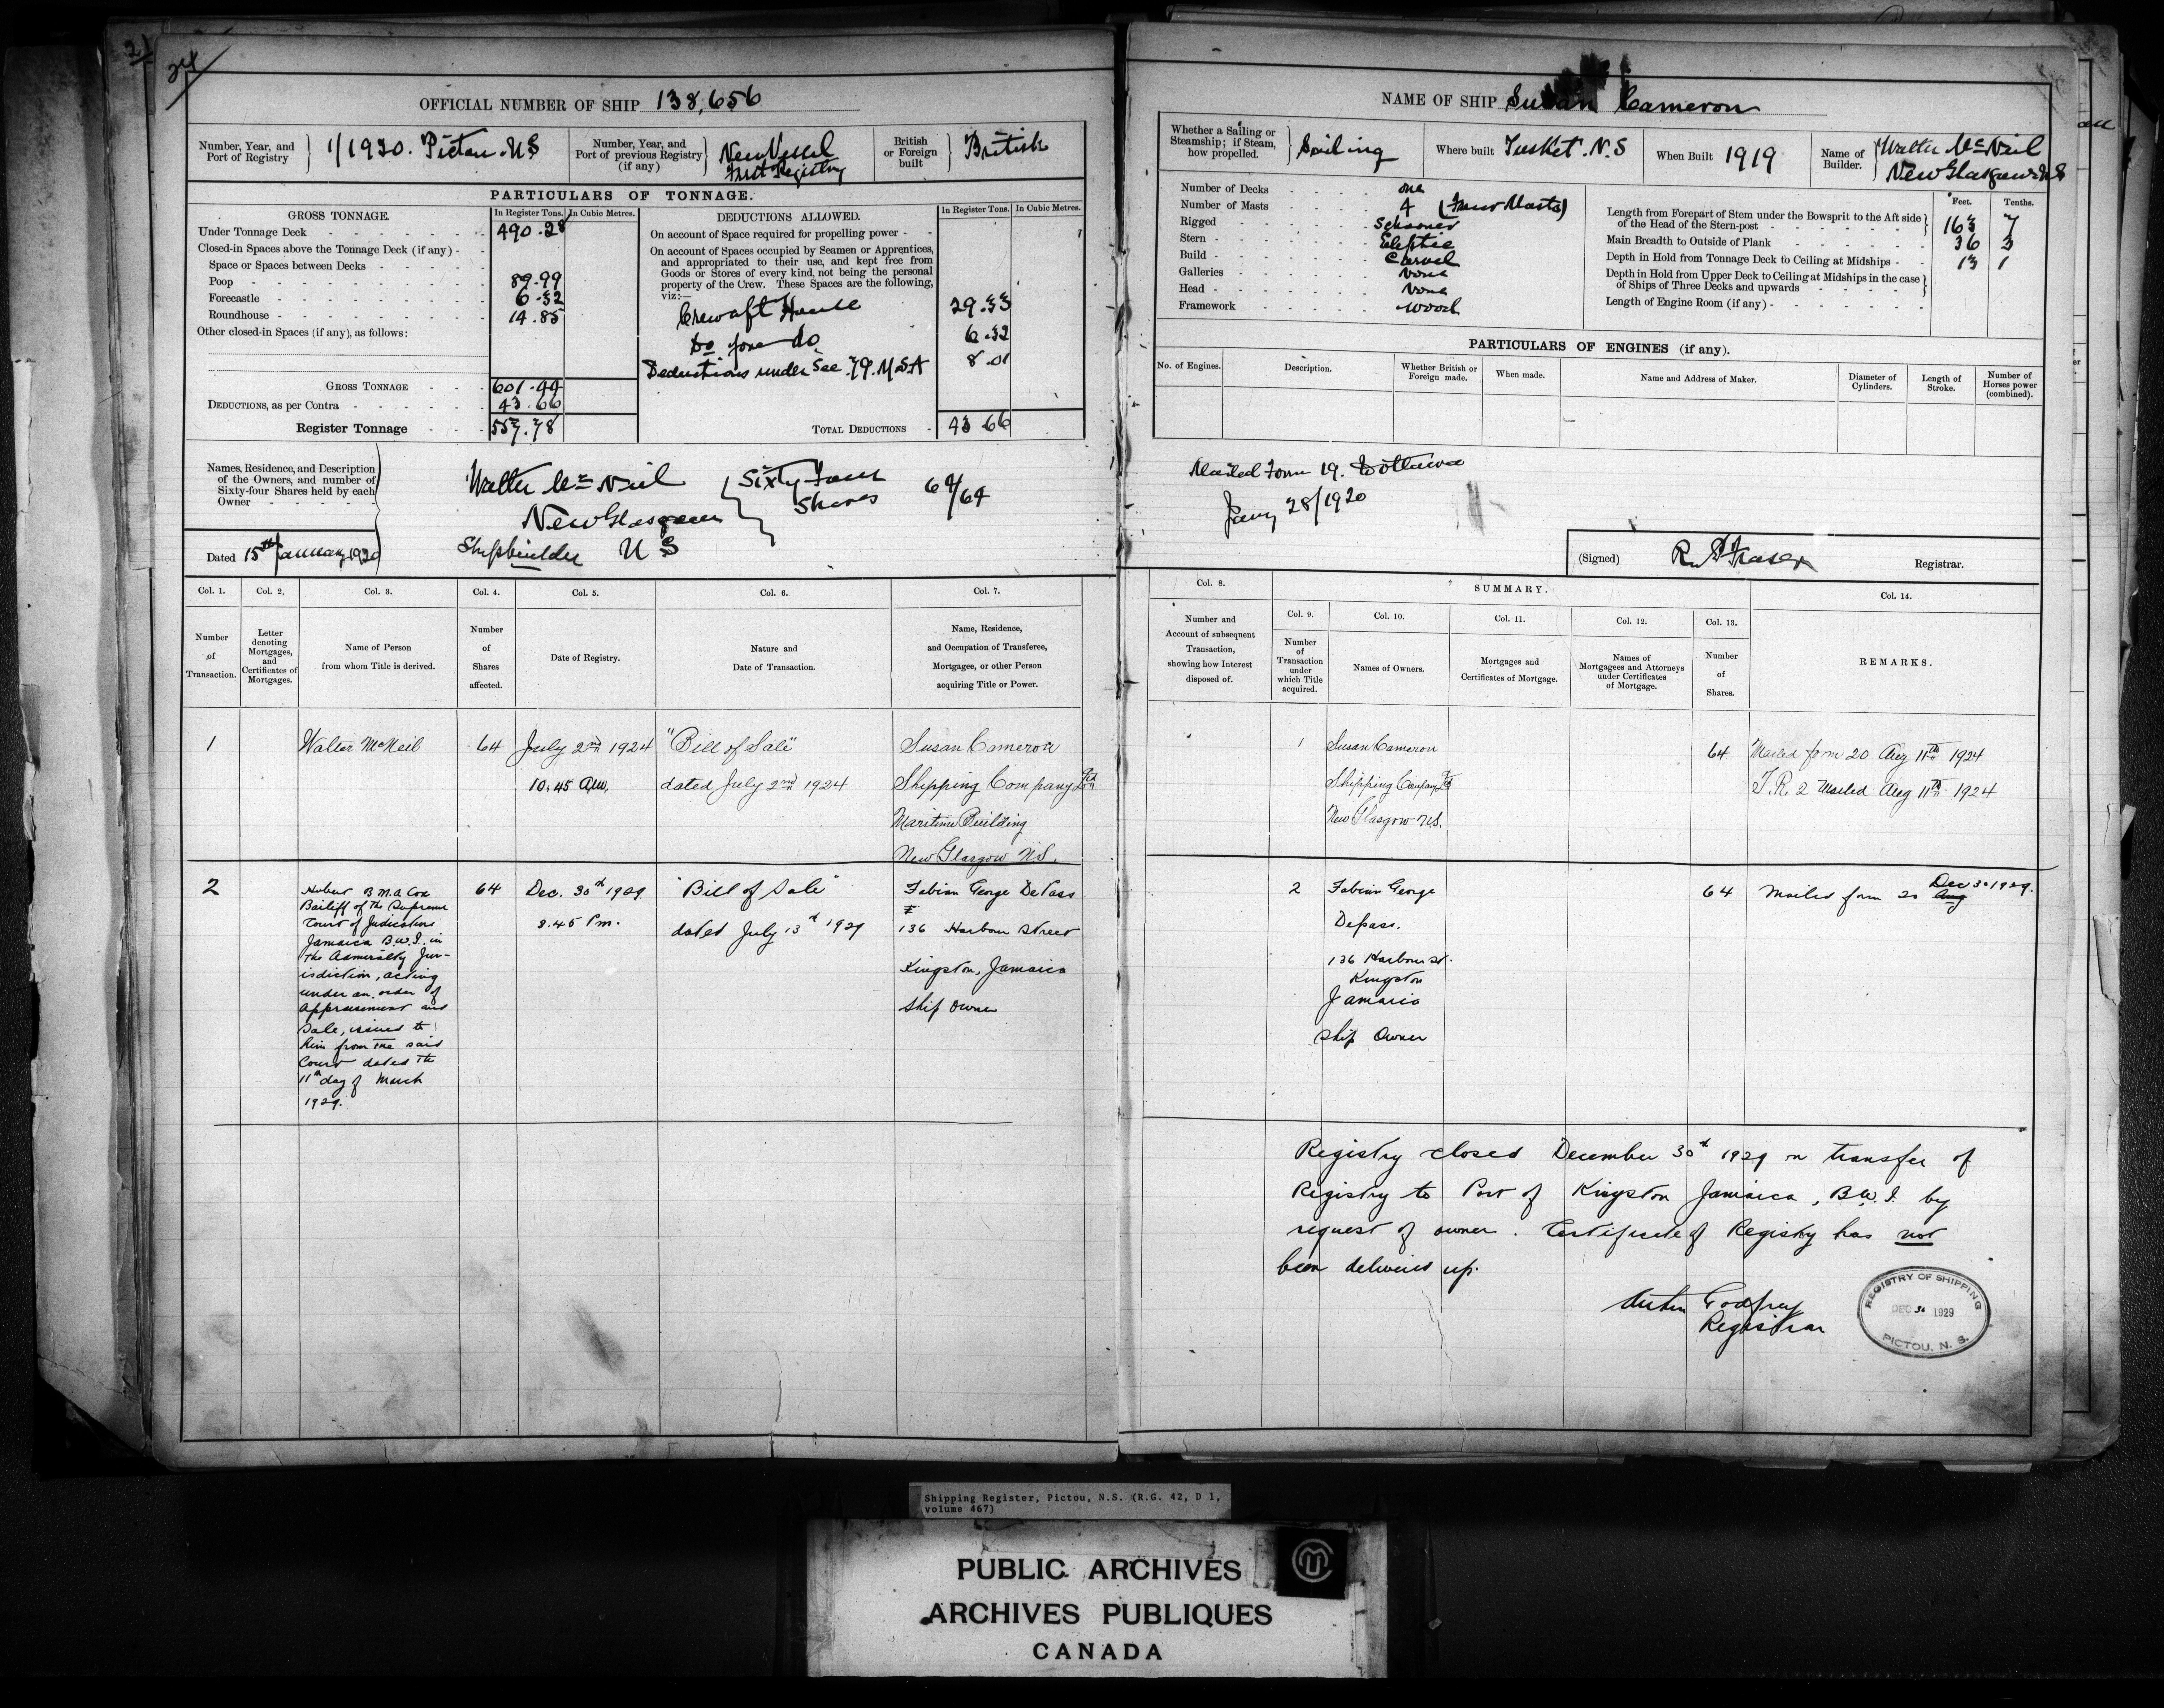 24
OFFICIAL NUMBER OF SHIP 138,656
Number, Year, and Port of Registry
1/1920. Pictou. N.S
Number, Year, and Port of previous Registry (if any)
New Vessel
First Registry
British or Foreign built
British
PARTICULARS OF TONNAGE.
GROSS TONNAGE.
In Register Tons.
In Cubic Metres.
Under Tonnage Deck 490.28
Closed-in Spaces above the Tonnage Deck (if any)
Space or Spaces between Decks
Poop 89.99
Forecastle 6.32
Roundhouse 14.85
Other closed-in Spaces (if any), as follows:
GROSS TONNAGE 601.44
DEDUCTIONS, as per Contra 43.66
Register Tonnage 557.78
DEDUCTIONS ALLOWED.
In Register Tons.
In Cubic Metres.
On account of Space required for propelling power
On account of Spaces occupied by Seamen or Apprentices,
and appropriated to their use, and kept free from
Goods or Stores of every kind, not being the personal
property of the Crew. These Spaces are the following,
viz:—
Crew aft House 29.33
Do fore do 6.32
Deductions under Sec. 79. M S A 8.01
TOTAL DEDUCTIONS 43.66
Names, Residence, and Description
of the Owners, and number of
Sixty-four Shares held by each
Owner
Walter McNeil
New Glasgow
Shipbuilder N S
Sixty Four
Shares
64/64
Dated 15th January 1920
Col. 1.
Col. 2.
Col. 3.
Col. 4.
Col. 5.
Col. 6.
Col. 7.
Number of Transaction.
Letter denoting Mortgages, and Certificates of Mortgages.
Name of Person from whom Title is derived.
Number of Shares affected.
Date of Registry.
Nature and Date of Transaction.
Name, Residence, and Occupation of Transferee, Mortgagee, or other Person acquiring Title or Power.
1
Walter McNeil
64
July 2nd 1924
10.45 a.m.
"Bill of Sale"
dated July 2nd 1924
Susan Cameron
Shipping Company Ltd
Maritime Building
New Glasgow N.S.
2
Hubert B.M.A. Cox
Bailiff of the Supreme
Court of Judicature
Jamaica B.W.I. in
the Admiralty Jur-
isdiction, acting
under an order of
Appraisement and
Sale, issued to
him from the said
Court dated the
11th day of March
1929.
64
Dec. 30th 1929
2.45 Pm.
"Bill of Sale"
dated July 13th 1929
Fabian George DePass
136 Harbour Street
Kingston, Jamaica
Ship Owner
NAME OF SHIP Susan Cameron
Whether a Sailing or Steamship; if Steam, how propelled.
Sailing
Where built Tusket. N.S
When Built 1919
Name of Builder.
Walter McNeil
New Glasgow N S
Number of Decks one
Number of Masts 4 (Four Masts)
Rigged Schooner
Stern Eliptic
Build Carvel
Galleries None
Head None
Framework Wood
Feet. Tenths.
Length from Forepart of Stem under the Bowsprit to the Aft side of the Head of the Stern-post 163 7
Main Breadth to Outside of Plank 36 3
Depth in Hold from Tonnage Deck to Ceiling at Midships 13 1
Depth in Hold from Upper Deck to Ceiling at Midships in the case of Ships of Three Decks and upwards
Length of Engine Room (if any)
PARTICULARS OF ENGINES (if any).
No. of Engines.
Description.
Whether British or Foreign made.
When made.
Name and Address of Maker.
Diameter of Cylinders.
Length of Stroke.
Number of Horses power (combined).
Mailed Form 19. to Ottawa
Jany 28/1920
(Signed) R. Fraser Registrar.
Col. 8.
SUMMARY.
Col. 9.
Col. 10.
Col. 11.
Col. 12.
Col. 13.
Col. 14.
Number and Account of subsequent Transaction, showing how Interest disposed of.
Number of Transaction under which Title acquired.
Names of Owners.
Mortgages and Certificates of Mortgage.
Names of Mortgagees and Attorneys under Certificates of Mortgage.
Number of Shares.
REMARKS.
1
Susan Cameron
Shipping Company Ltd
New Glasgow N.S.
64
Mailed form 20 Aug 11th 1924
T.R. 2 Mailed Aug 11th 1924
2
Fabian George
Depass.
136 Harbour St.
Kingston
Jamaica
Ship Owner
64
Mailed form 20 Aug Dec 30 1929.
Registry closed December 30th 1929 on transfer of
Registry to Port of Kingston Jamaica, B.W.I. by
request of owner. Certificate of Registry has not
been delivered up.
Godfrey
Registrar
REGISTRY OF SHIPPING
DEC 30 1929
PICTOU, N. S.
Shipping Register, Pictou, N.S. (R.G. 42, D 1,
volume 467)
PUBLIC ARCHIVES
ARCHIVES PUBLIQUES
CANADA